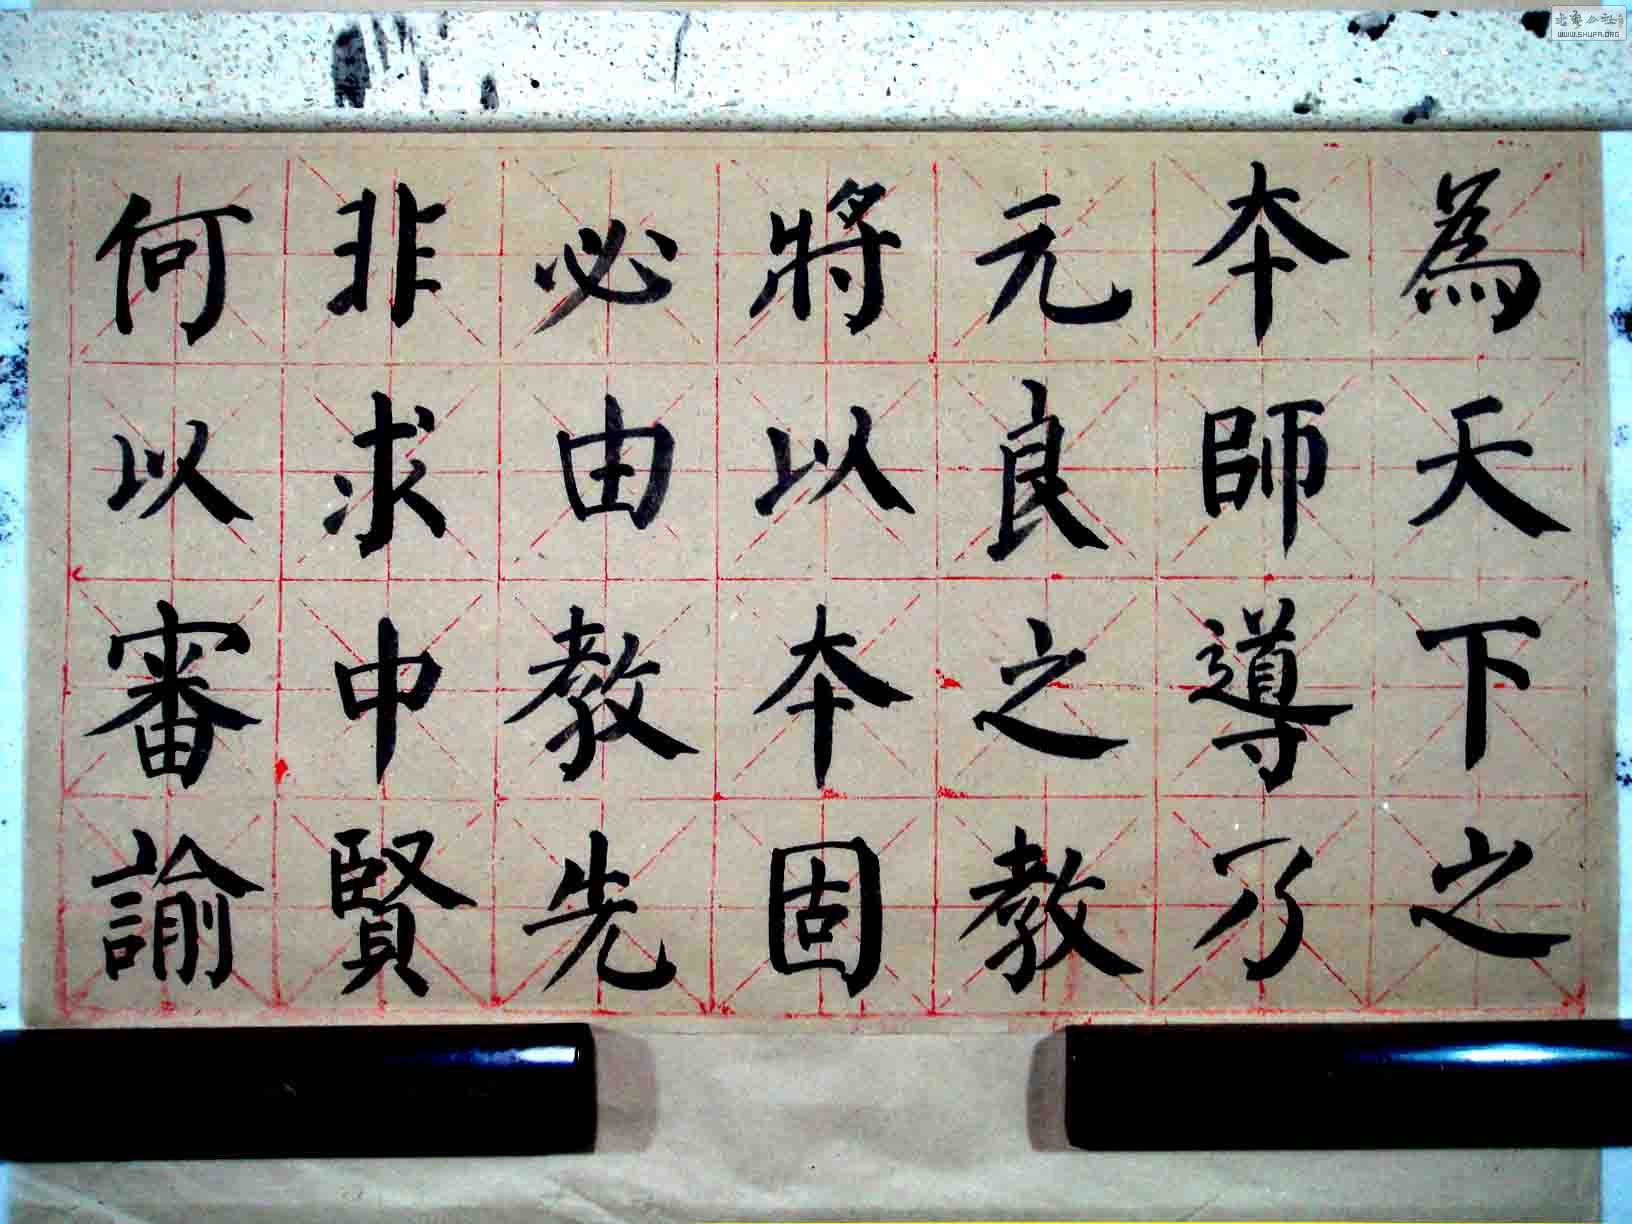 為天下之
本師導乃
元良之教
將以本固
必由教先
非求中賢
何以審諭
WWW.SHUFA.ORG